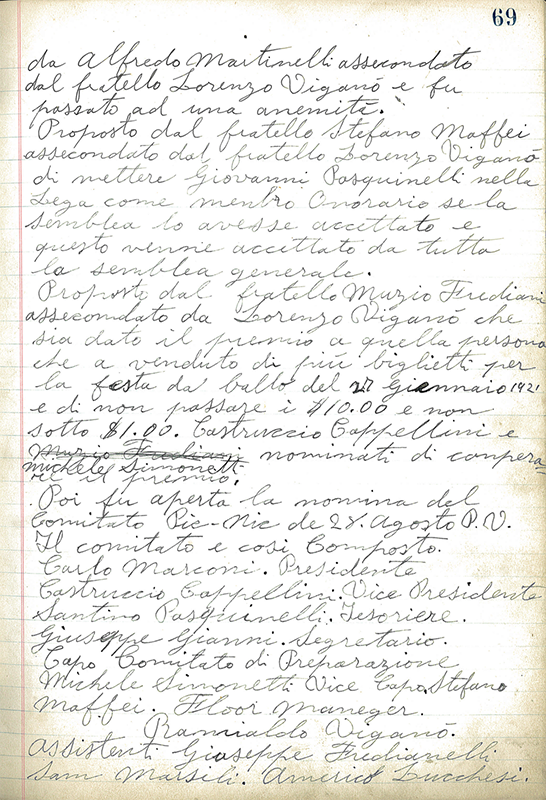 69
da Alfredo Martinelli assecondato
dal fratello Lorenzo Viganó e fu
passato ad una anemitê.
Proposto dal fratello Stefano Maffei
assecondato dal fratello Lorenzo Viganó
di mettere Giovanni Pasquinelli nella
Lega come membro Onorario se la
semblea lo avesse accettato e
questo vennie accettato da tutta
la semblea generale.
Proposto dal fratello Muzio Frediani
assecondato da Lorenzo Viganó che
sia dato il premio a quella persona
che a venduto di più biglietti per
la festa da ballo del 27 Giennaio 1921
e di non passare i $10.00 e non
sotto $1.00. Castruccio Cappellini e
Muzio Frediani nominati di compera=
Michele Simonetti
re il premio.
Poi fu aperta la nomina del
Comitato Pic-Nic de 28. Agosto P.V.
Il comitato e cosi Composto.
Carlo Marconi. Presidente
Castruccio Cappellini. Vice Presidente
Santino Pasquinelli. Tesoriere.
Giuseppe Gianni. Segretario.
Capo Comitato di Preparazione
Michele Simonetti Vice Capo. Stefano
Maffei. Floor Maneger.
Ramialdo Viganó.
Assistenti Giuseppe Fredianelli
Sam Marsili. Americo Lucchesi.